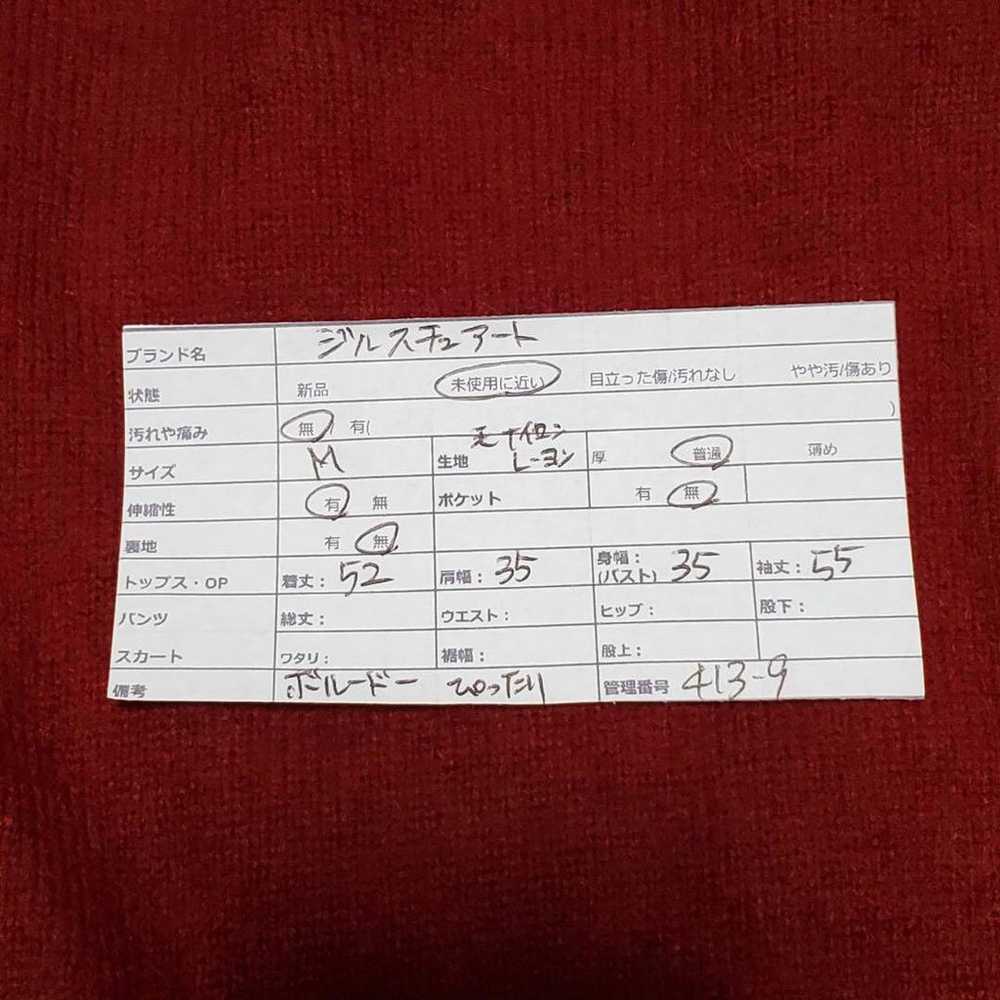 ブランド名 ジルスチュアート
状態 新品 未使用に近い 目立った傷/汚れなし やや汚/傷あり
汚れや痛み 無 / 有( )
サイズ M 生地 毛 ナイロン レーヨン 厚 普通 薄め
伸縮性 有 無 ポケット 有 無
裏地 有 無
トップス・OP 着丈: 52 肩幅: 35 身幅: (バスト) 35 袖丈: 55
パンツ 総丈: ウエスト: ヒップ: 股下:
スカート ワタリ: 裾幅: 股上:
備考 ボルドー ぴったり 管理番号 413-9